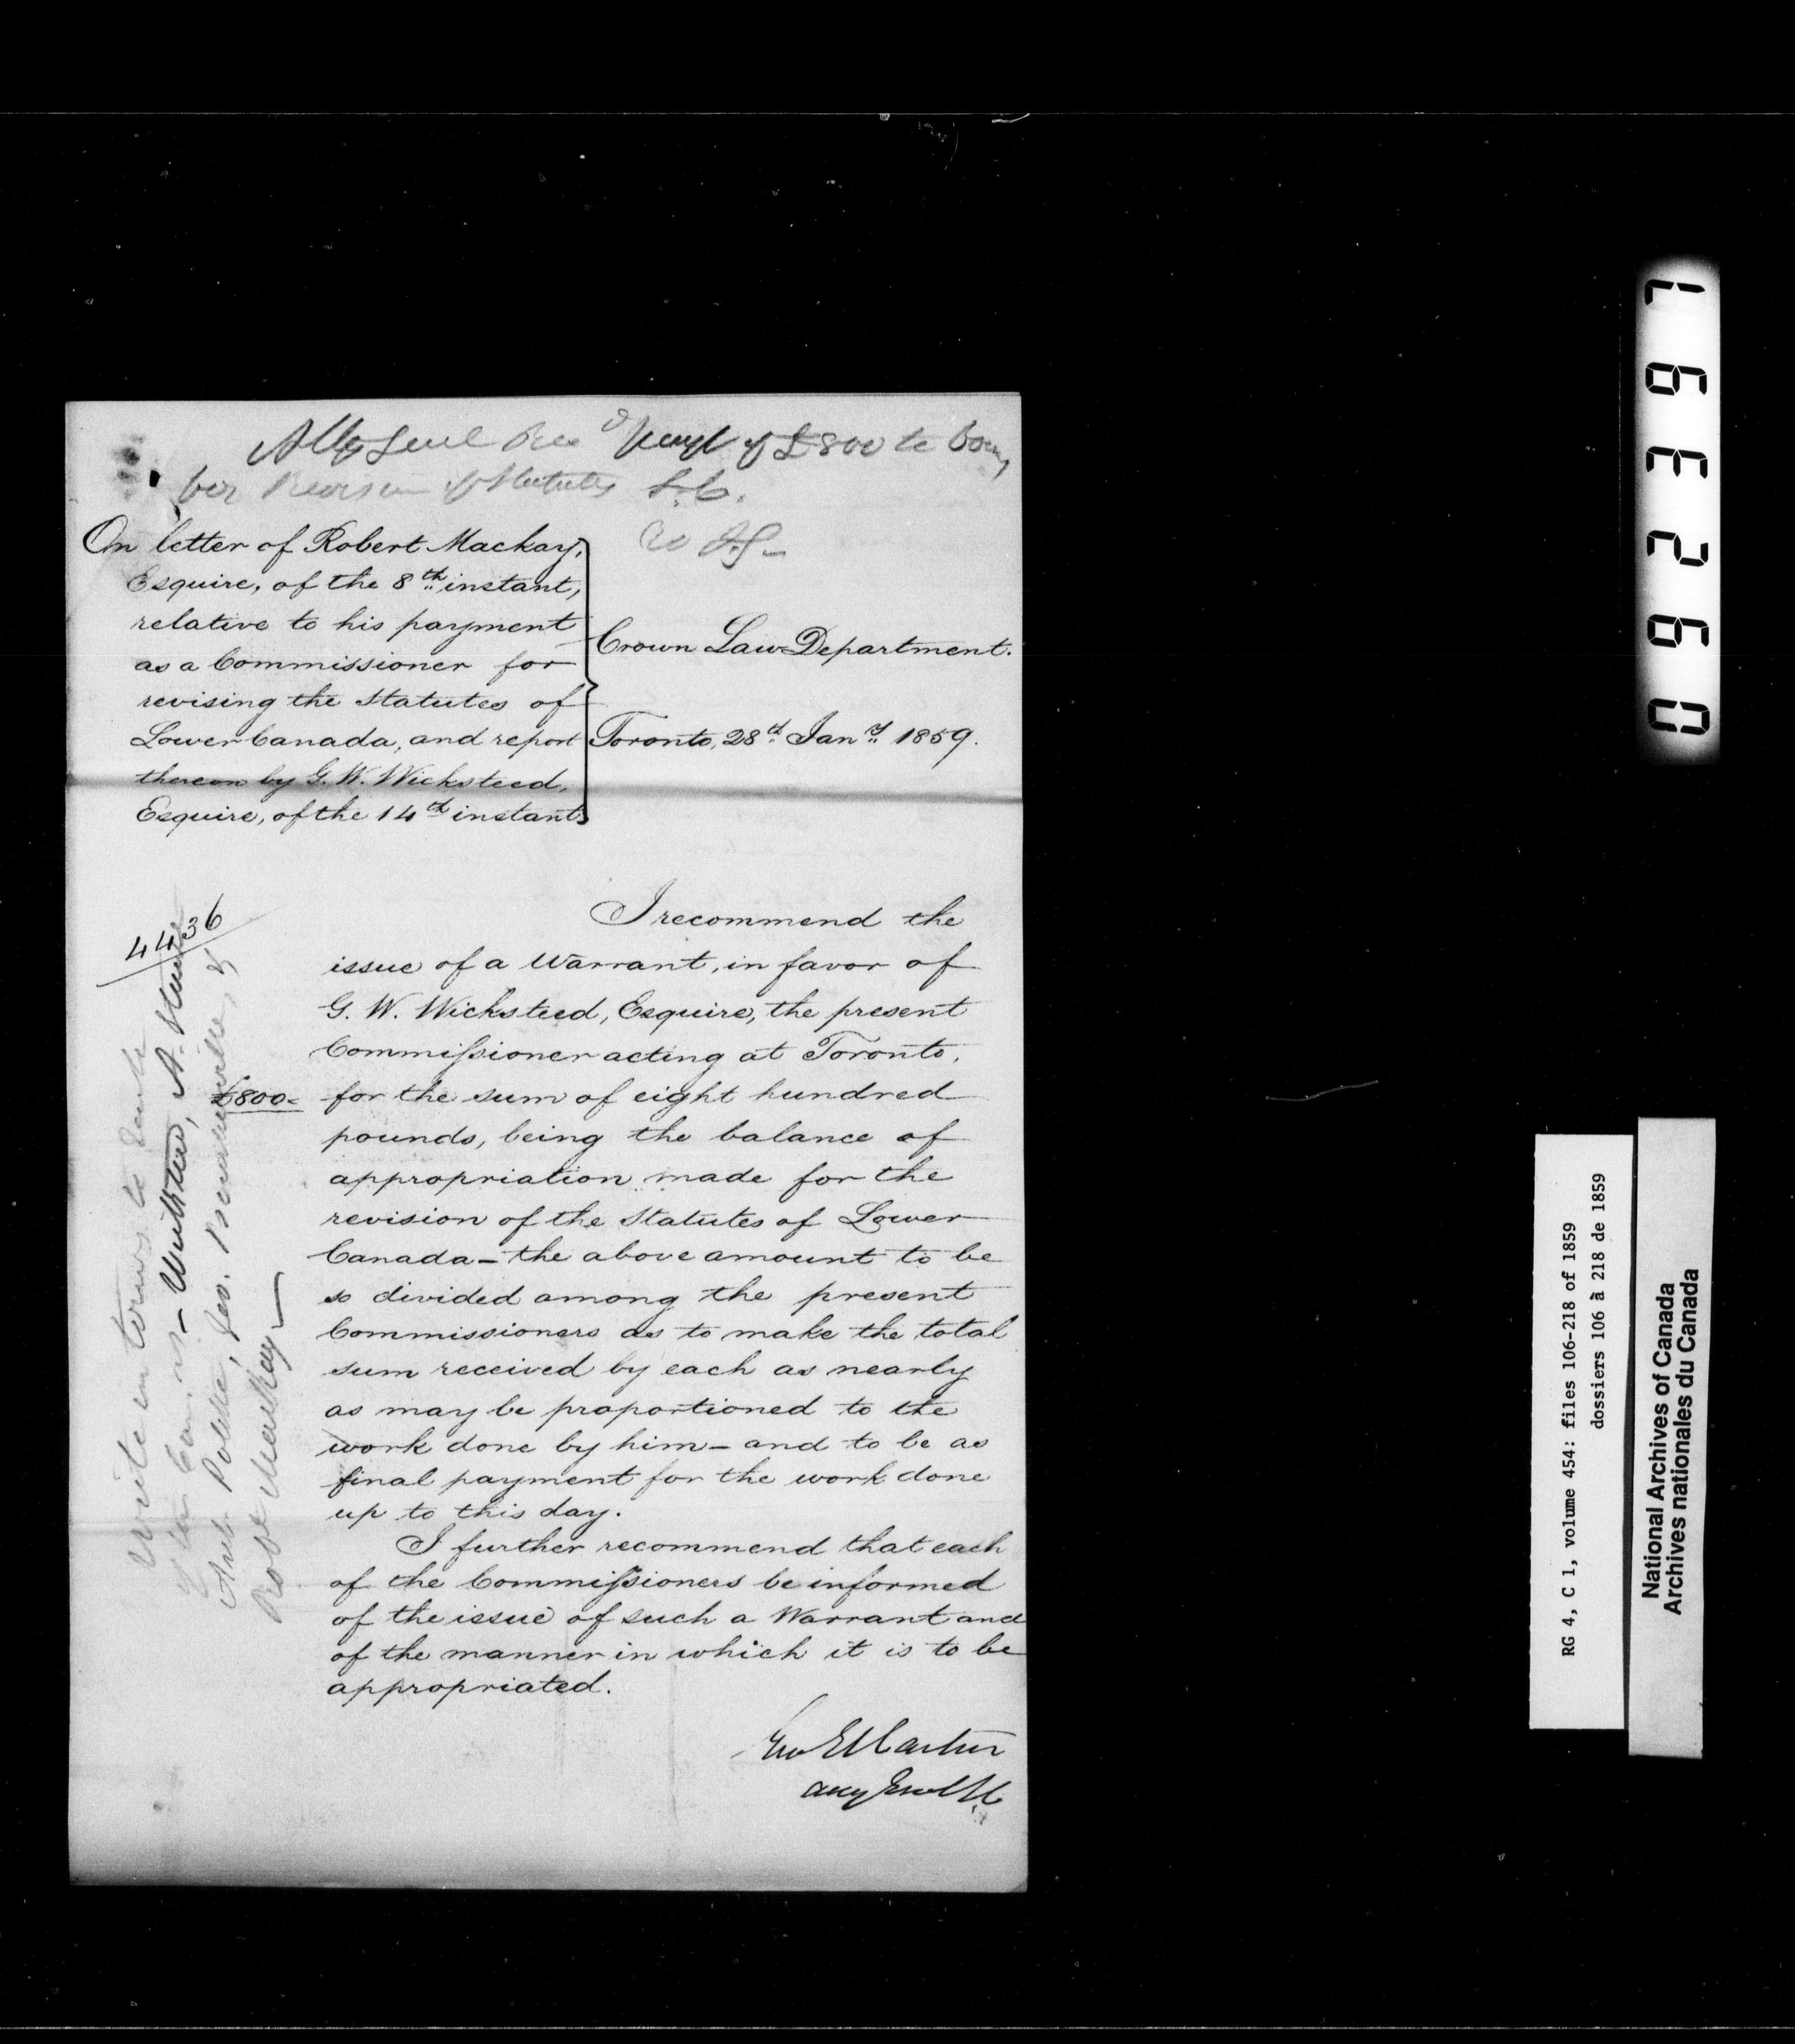 Atty Genl Rec^d payt of £800 to Com,
for Revision of Statutes L.C.
On letter of Robert Mackay,
Esquire, of the 8th instant,
relative to his payment
as a Commissioner for
revising the Statutes of
Lower Canada, and report
thereon by G. W. Wicksteed,
Esquire, of the 14th instant.
Crown Law Department.
Toronto, 28th Jany 1859.
4436
I recommend the
issue of a Warrant, in favor of
G. W. Wicksteed, Esquire, the present
Commissioner acting at Toronto,
£800- for the sum of eight hundred
pounds, being the balance of
appropriation made for the
revision of the Statutes of Lower
Canada – the above amount to be
so divided among the present
Commissioners as to make the total
sum received by each as nearly
as may be proportioned to the
work done by him – and to be as
final payment for the work done
up to this day.
I further recommend that each
of the Commissioners be informed
of the issue of such a Warrant and
of the manner in which it is to be
appropriated.
Geo E Cartier
Atty Genl LC
Write in terms to
Wicksteed, A.
Polette, Geo.
Robt Mackay
RG 4, C 1, volume 454: files 106-218 of 1859
dossiers 106 à 218 de 1859
National Archives of Canada
Archives nationales du Canada